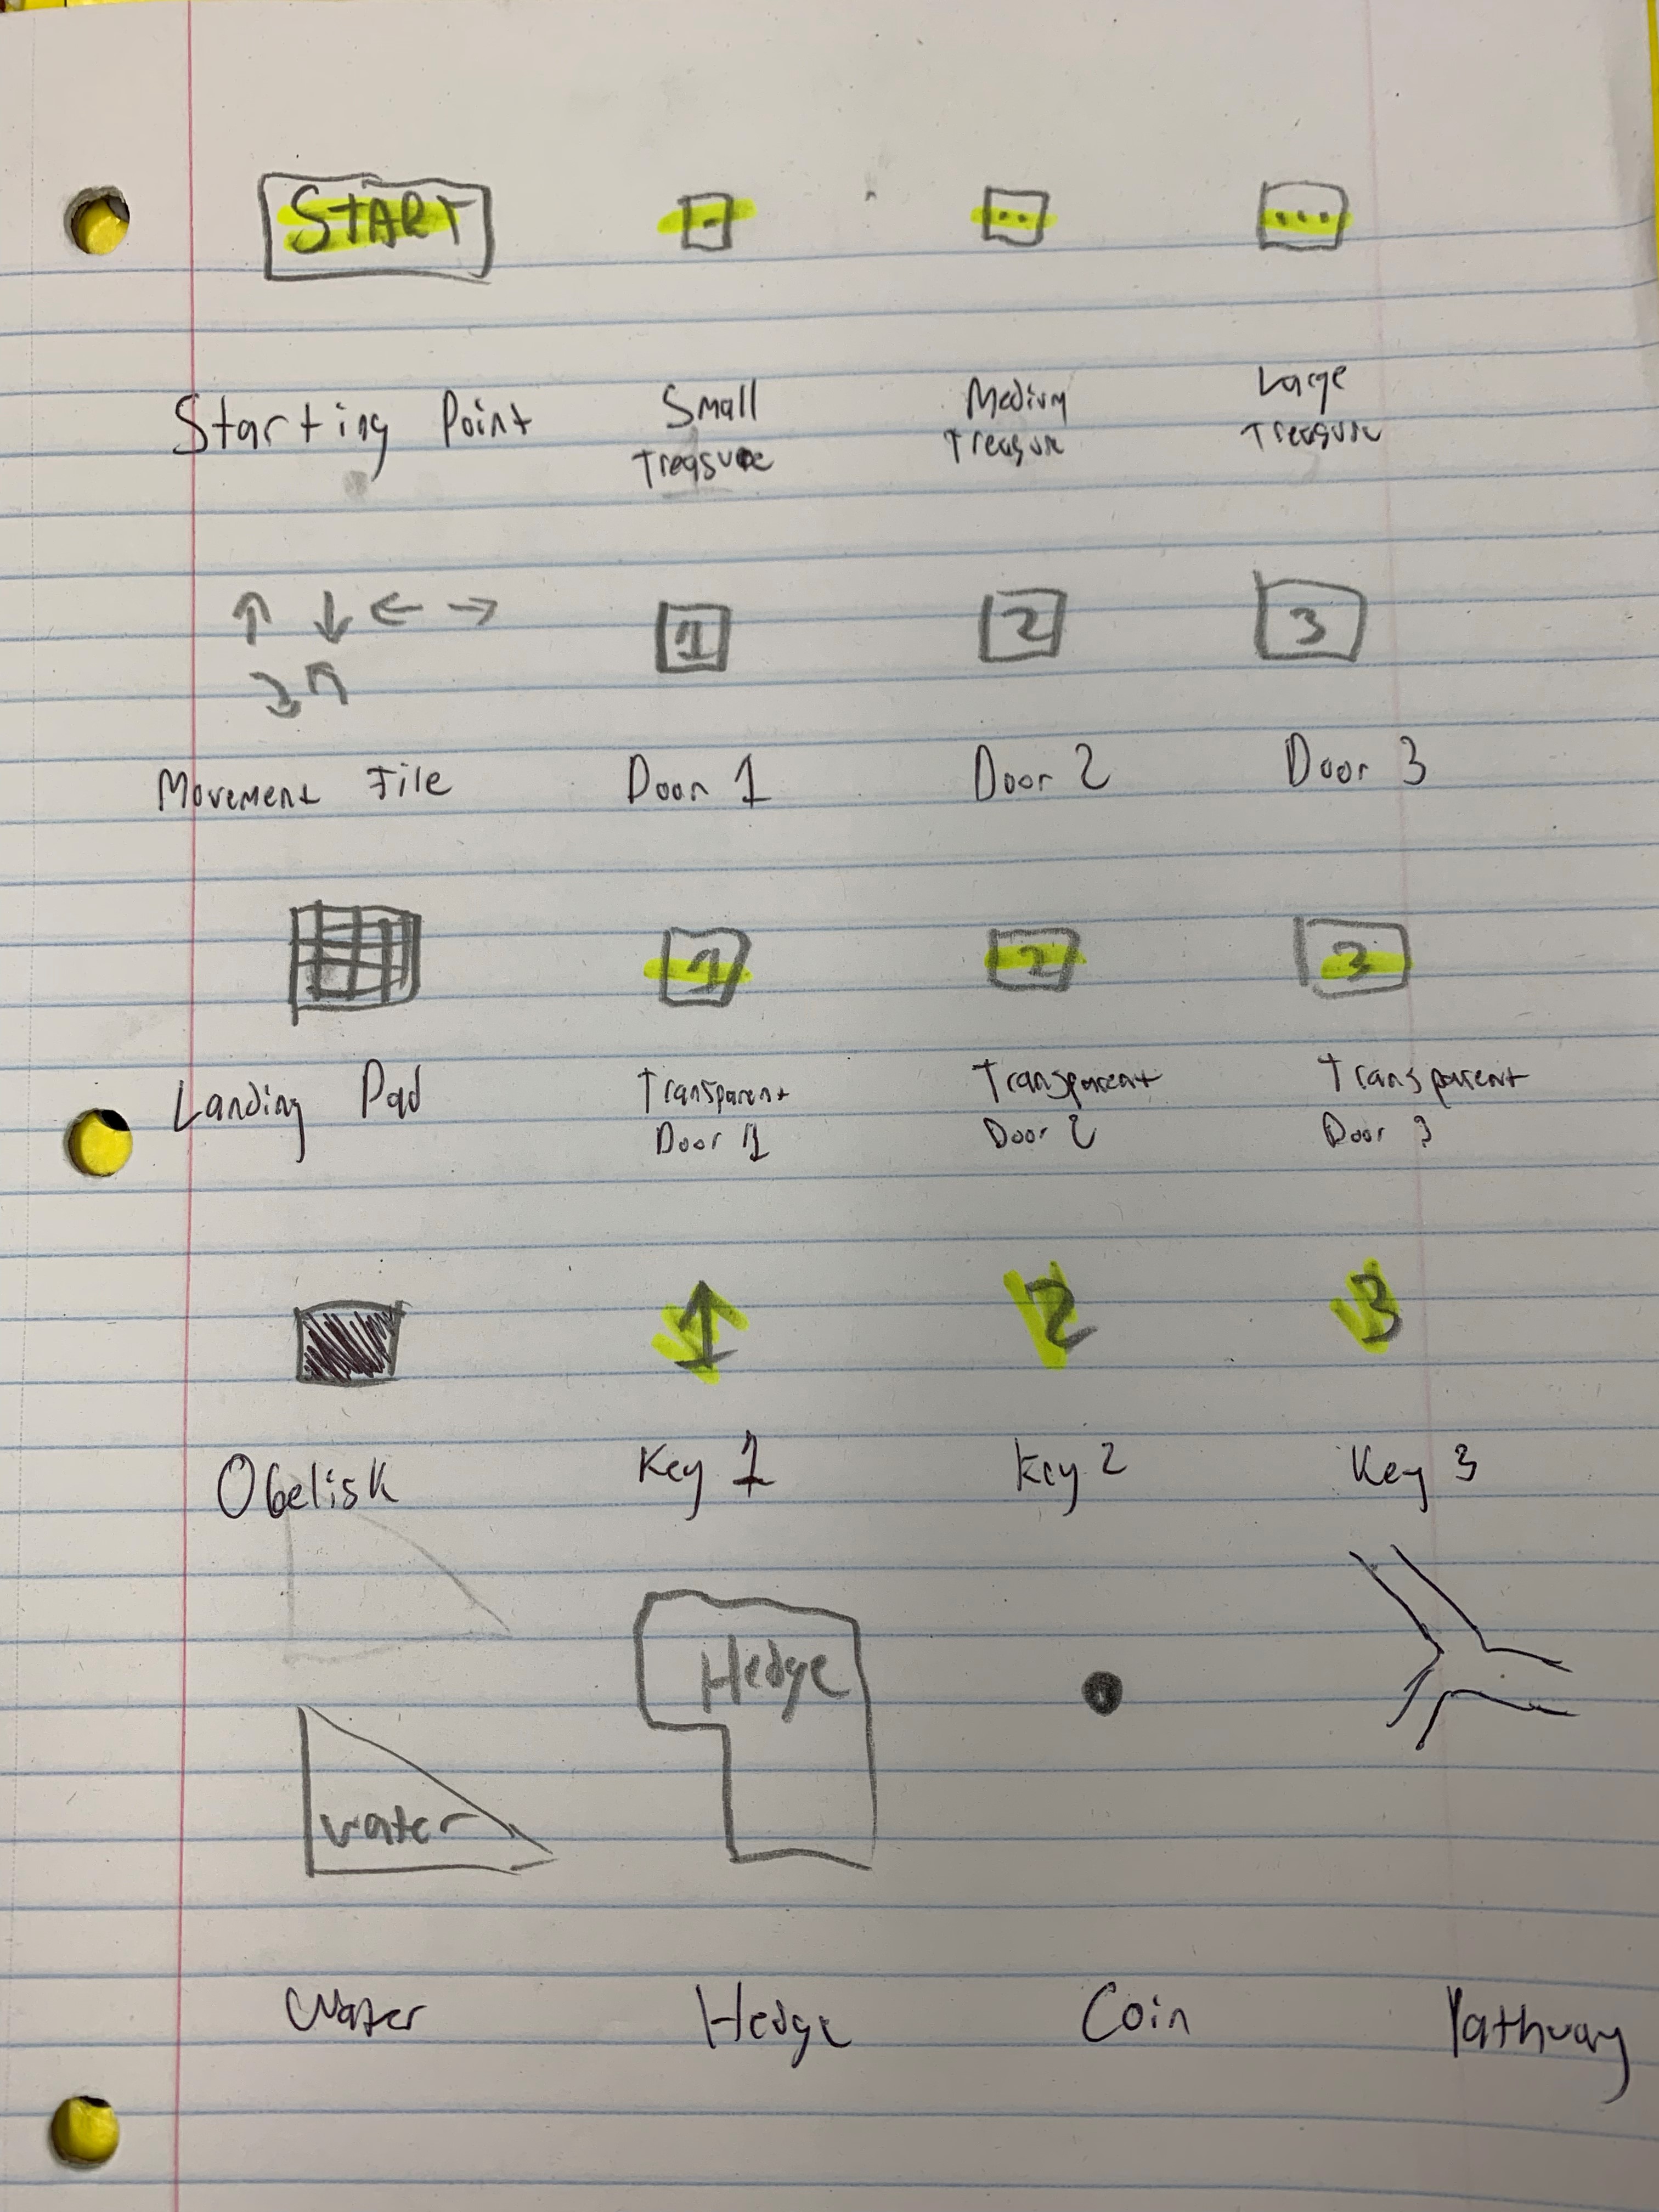 START
Starting Point
Small
Treasure
Medium
Treasure
Large
Treasure
↑ ↓ ← →
1
2
3
Movement File
Door 1
Door 2
Door 3
1
2
3
Landing Pad
Transparent
Door 1
Transparent
Door 2
Transparent
Door 3
1
2
3
Obelisk
Key 1
Key 2
Key 3
Hedge
water
Water
Hedge
Coin
Pathway